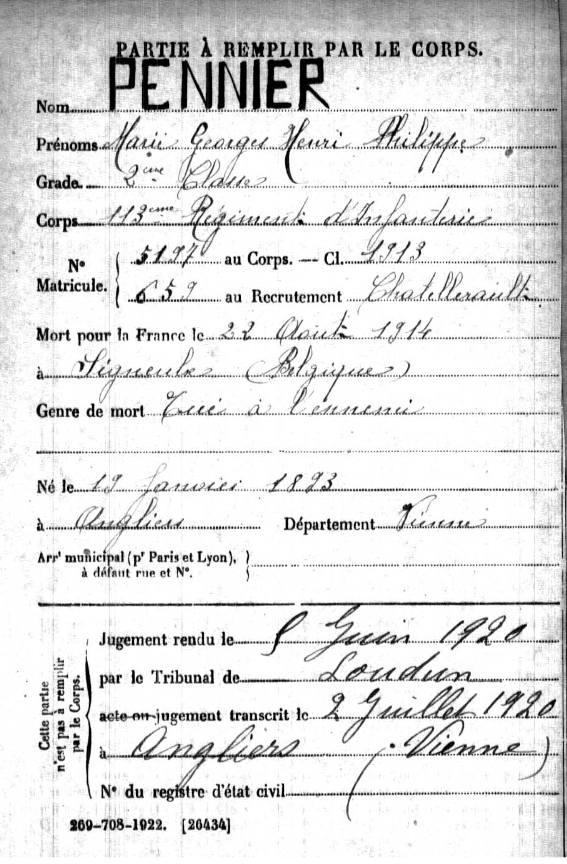 PARTIE À REMPLIR PAR LE CORPS.
Nom PENNIER
Prénoms Marie Georges Henri Philippe
Grade 2ème Classe
Corps 113ème Régiment d'Infanterie
N° Matricule. { 5197 au Corps. — Cl. 1913
659 au Recrutement Chatellerault
Mort pour la France le 22 Août 1914
à Signeulx (Belgique)
Genre de mort Tué à l'ennemi
Né le 19 Janvier 1893
à Angliers Département Vienne
Arrt municipal (pr Paris et Lyon), }
à défaut rue et N°.
Cette partie n'est pas à remplir par le Corps.
Jugement rendu le 5 Juin 1920
par le Tribunal de Loudun
acte ou jugement transcrit le 2 Juillet 1920
à Angliers (Vienne)
N° du registre d'état civil
269-708-1922. [26434]